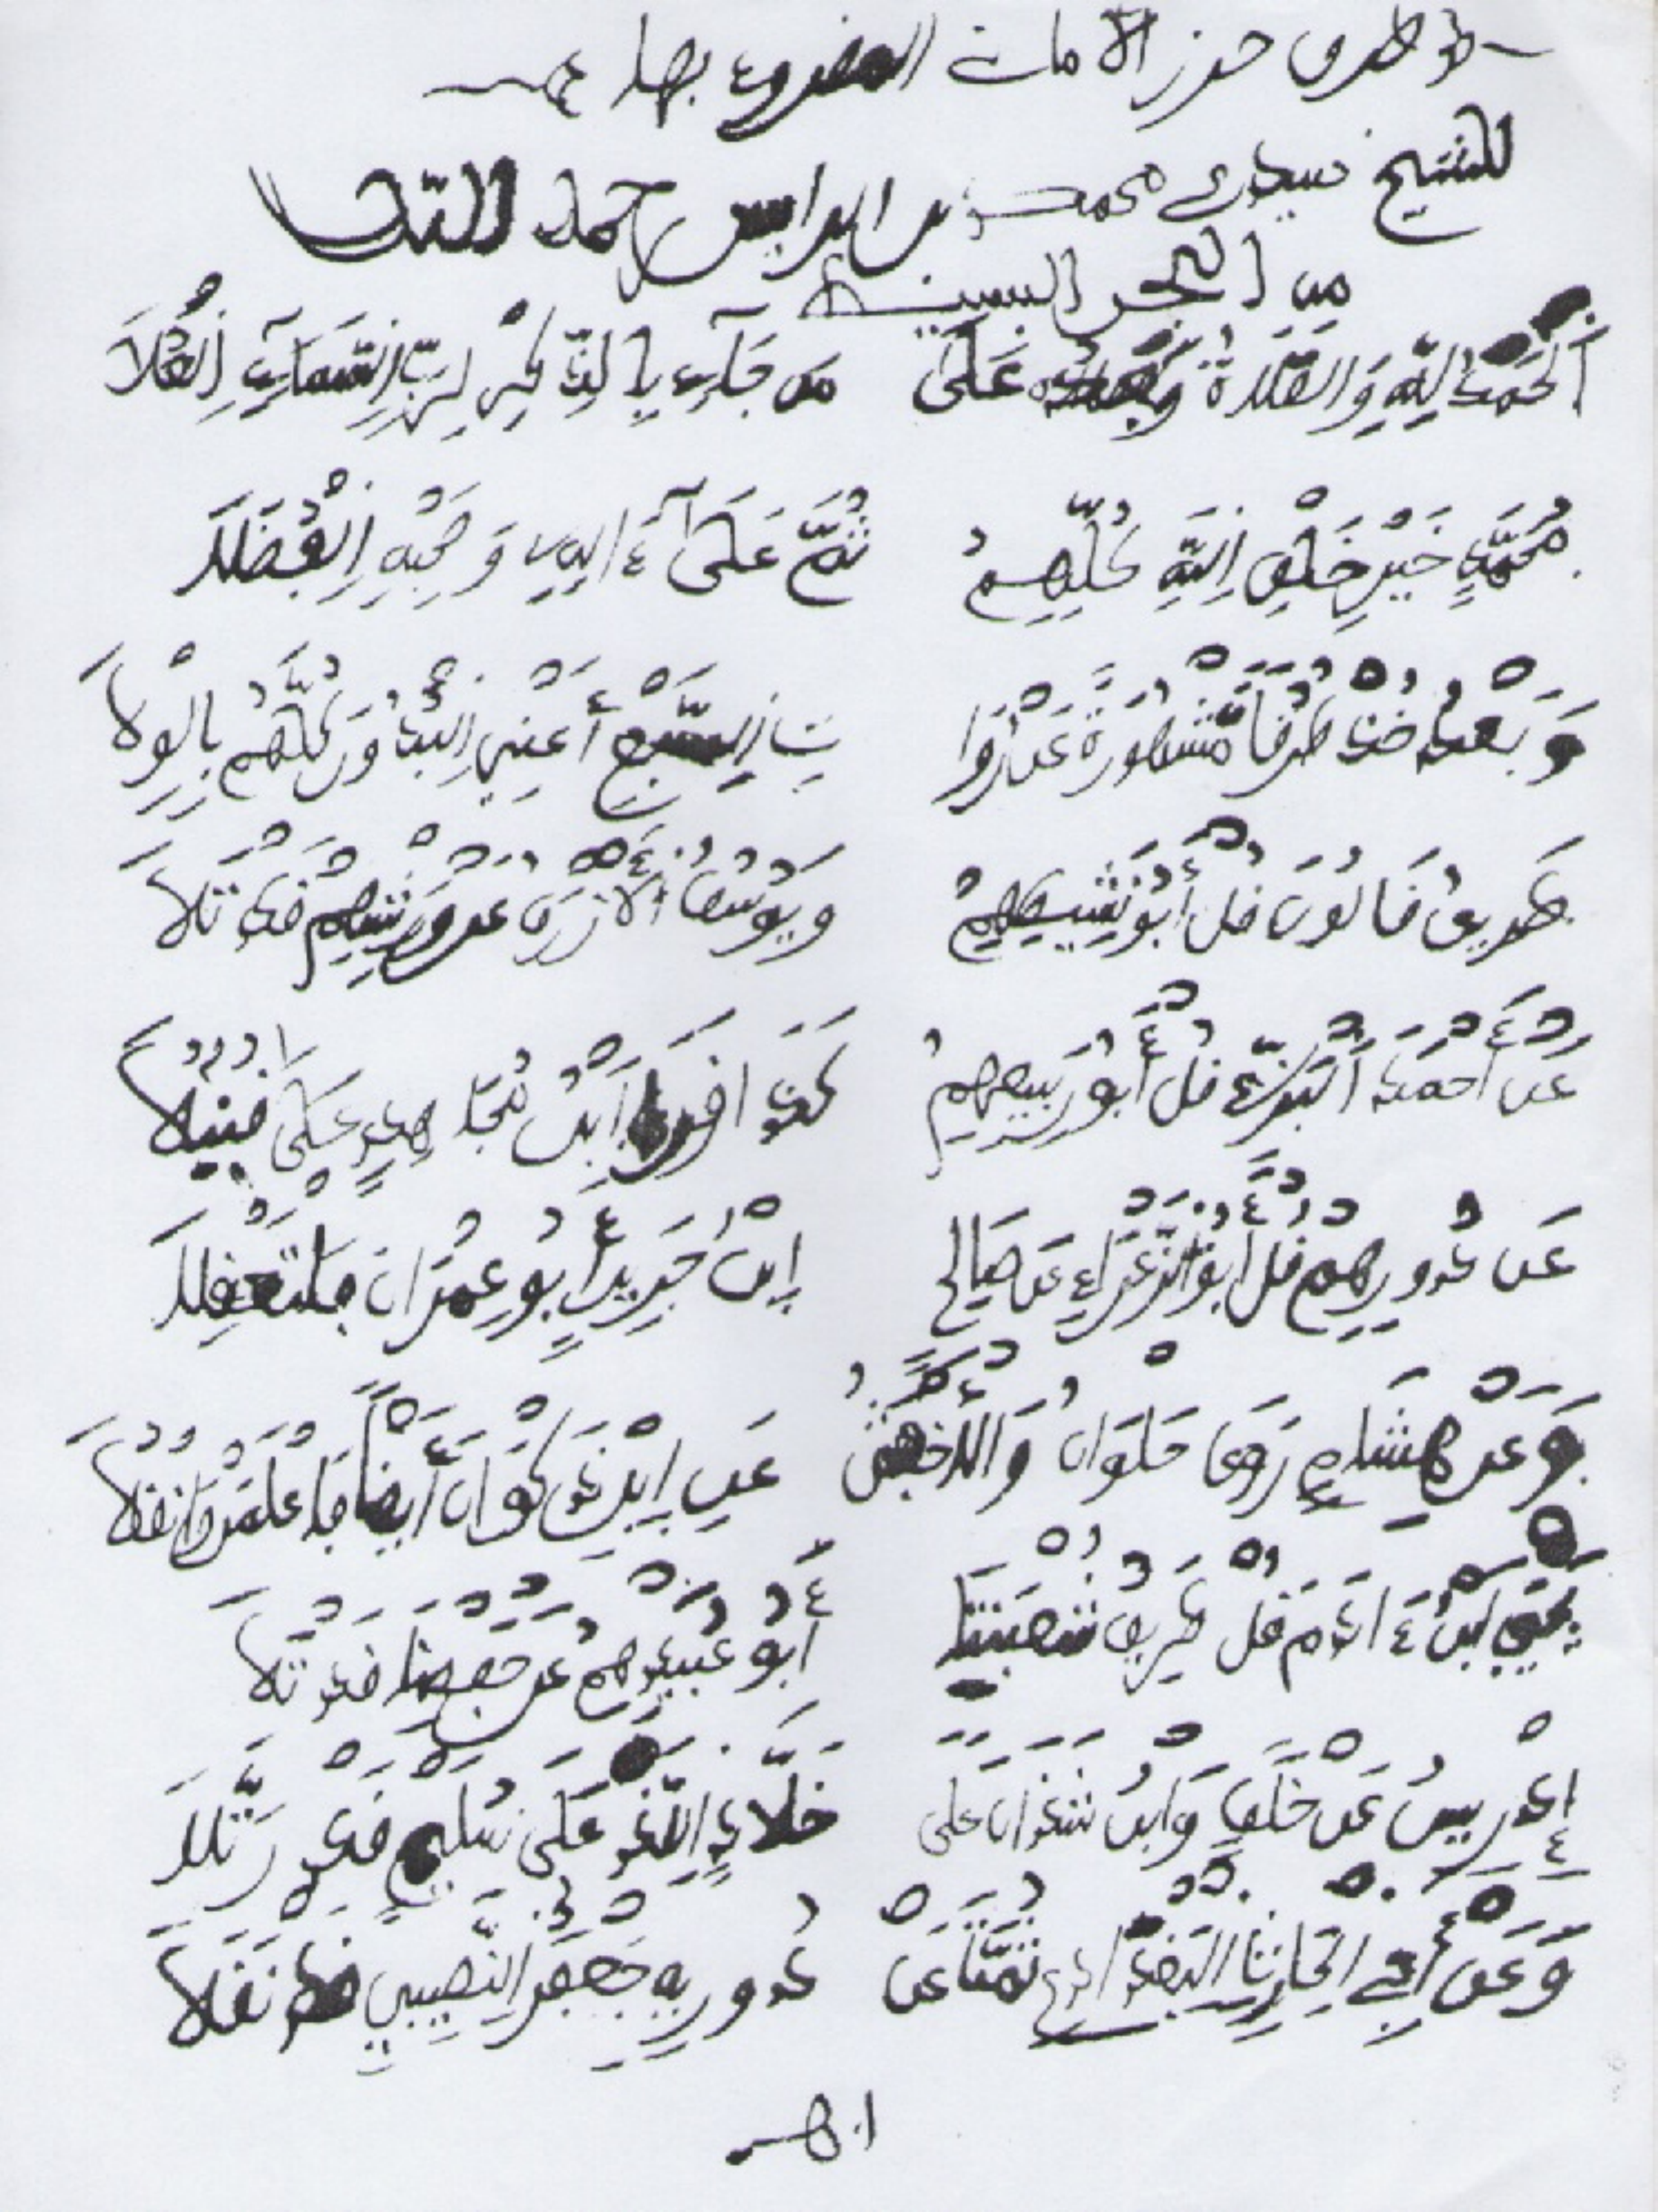 طرق حرز الأمان المقروء بها
للشيخ سيدي محمد بن ابراهيم رحمه الله
من البحر البسيط
اَلْحَمْدُ لِلَّهِ وَالصَّلَاةُ وَبَعْدُ عَلَى مَن جَاءَ بِالذِّكْرِ لِرَبِّ السَّمَاءِ الْعُلَا
مُحَمَّدٍ خَيْرِ خَلْقِ اللَّهِ كُلِّهِمُ ثُمَّ عَلَى ءَالِهِ وَصَحْبِهِ الْفُضَلَا
وَبَعْدُ خُذْ طُرُقًا مَّشْهُورَةً عَن رُوَا تِ السَّبْعِ أَعْنِي الْبُدُورَ كُلَّهُمْ بِالْوِلَا
طَرِيقُ قَالُونَ قُلْ أَبُو نَشِيطِهِمُ وَيُوسُفُ الْأَزْرَقُ عَن وَرْشِهِمْ قَدْ تَلَا
عَنْ أَحْمَدَ الْبَزِّ قُلْ أَبُو رَبِيعِهِمُ كَذَا ابْنُ مُجَاهِدٍ عَلَى قُنْبُلَا
عَن دُورِيهِمْ قُلْ أَبُو الزَّعْرَاءِ عَن صَالِحِ اِبْنُ جَرِيرٍ أَبُو عِمْرَانَ فَلْتَعْقِلَا
وَعَنْ هِشَامٍ رَوَى حُلْوَانُ وَالْأَخْفَشُ عَنِ ابْنِ ذَكْوَانَ أَيْضًا فَاعْلَمَنْ وَانْقُلَا
يَحْيَى ابْنُ ءَادَمَ قُلْ طَرِيقُ شُعْبَتِنَا أَبُو عُبَيْدِهِمُ عَنْ حَفْصِنَا قَدْ تَلَا
إِدْرِيسُ عَنْ خَلَفٍ وَابْنُ شَذَانَ عَلَى خَلَّادٍ الَّذْ عَلَى سُلَيْمٍ قَدْ رَتَّلَا
وَعَنْ أَبِي الْحَارِثِ الْبَغْدَادِي ثُمَّتَ عَنْ دُورِيهِ جَعْفَرُ النَّصِيبِي قَدْ نَقَلَا
اهـ